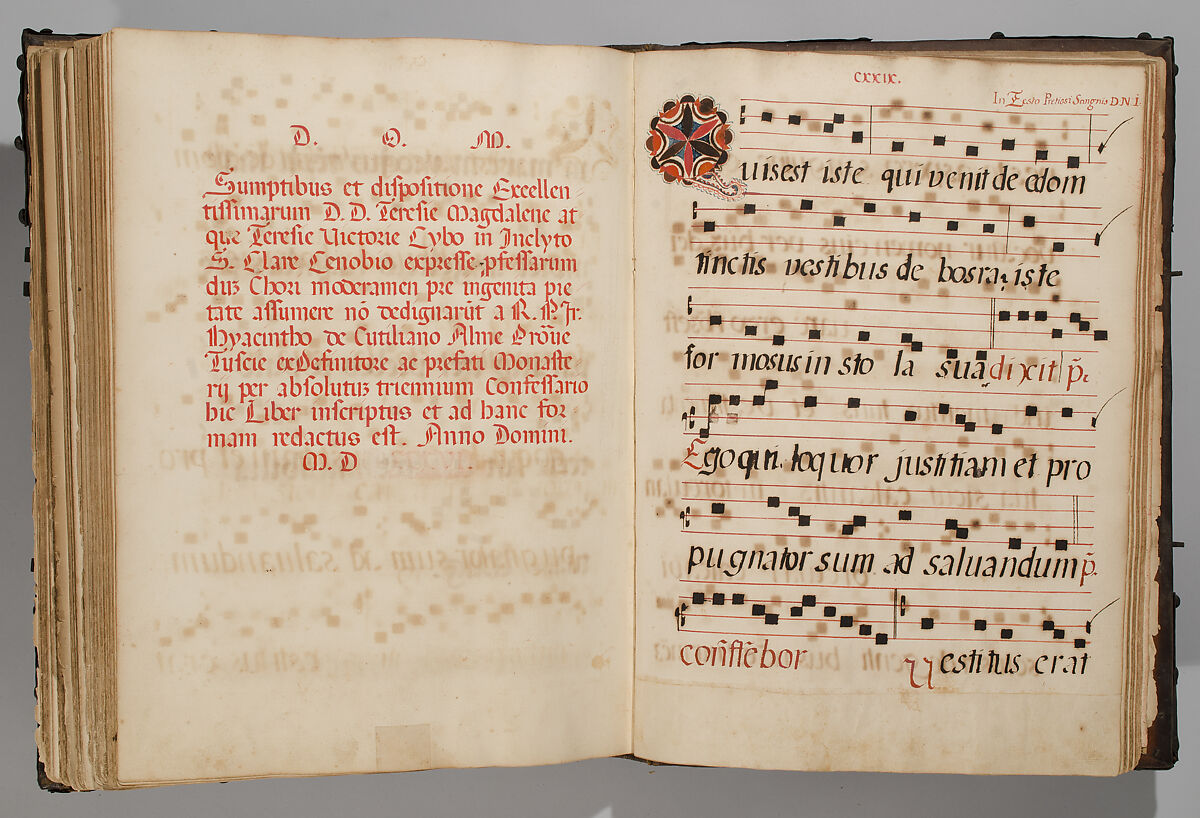 D. O. M.
Sumptibus et dispositione Excellen
tissimarum D. D. Teresie Magdalene at
que Teresie Victorie Cybo in Inclyto
S. Clare Cenobio expresse pfessarum
diu Chori moderamen pre ingenita pie
tate assumere nõ dedignarũt a R. P. Fr.
Hyacintho de Cutiliano Alme Prõue
Tuscie exDefinitore ac prefati Monaste
rij per absolutu triennium Confessario
hic Liber inscriptus et ad hanc for
mam redactus est. Anno Domini.
M. D
CXXIX.
In Festo Pretiosi Sangnis D.N I.
Quisest iste qui venit de edom
tinctis vestibus de bosra, iste
for mosus in sto la sua dixit p̃.
Ego qui loquor justitiam et pro
pugnator sum ad saluandum p̃.
confitebor Vestitus erat